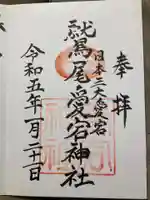 奉拝
日本三大愛宕
鷲尾愛宕神社
令和五年一月二十一日